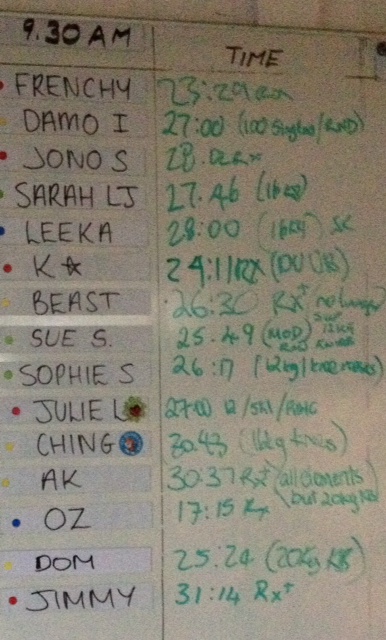 9.30 AM TIME
FRENCHY 23:29 RX
DAMO I 27:00 (100 Singles/RND)
JONO S 28.02 Rx
SARAH LJ 27.46 (16kg)
LEEKA 28:00 (16kg) SC
K☆ 24:11 RX (DU UB)
BEAST 26:30 RX+
SUE S. 25.49 (MOD 12kg
SOPHIE S 26:17 (12kg/knee raises)
JULIE L 27:00 12/SKI/
CHING 30.43 (16kg knees)
AK 30:37 Rx+ (all elements
but 20kg KB)
OZ 17:15 Rx
DOM 25:24 (20kg KB)
JIMMY 31:14 Rx+